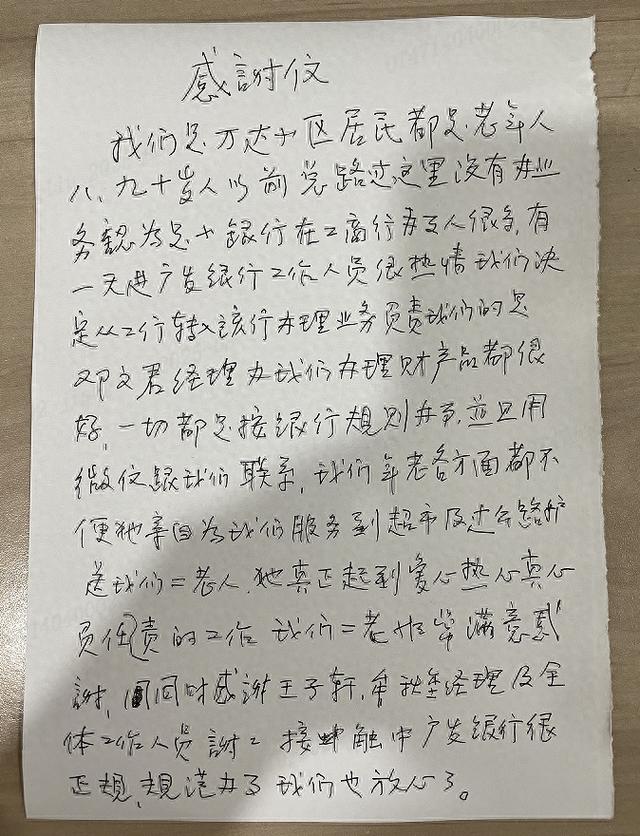 感謝信
我们是万达小区居民都是老年人
八、九十岁人以前总路过这里没有办业
务認为是小银行在工商行办事人很多,有
一天进广发银行工作人员很热情我们决
定从工行转入該行办理业务負责我们的是
邓文君经理办我们办理财产品都很
好,一切都是按银行规则办事,並且用
微信跟我们联系,我们年老各方面都不
便她亲自为我们服务到超市及过马路护
送我们二老人,她真正起到爱心热心真心
負任責的工作 我们二老非常满意感
謝,同时感謝王子轩,经理及全
体工作人员謝: 接触中广发银行很
正规,规范办事我们也放心了。